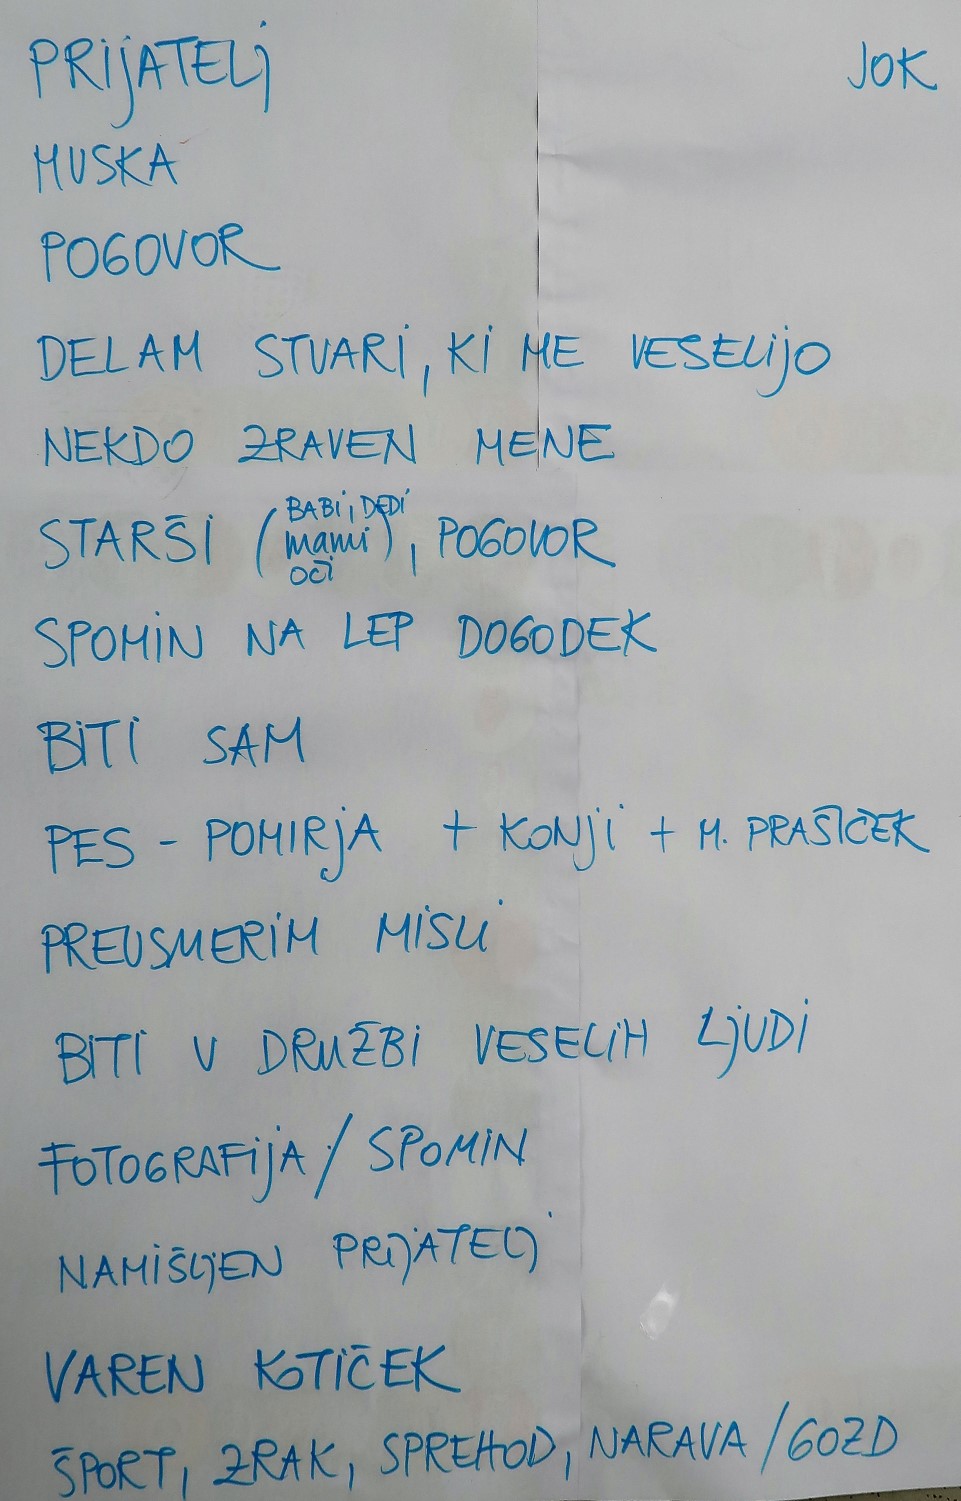 PRIJATELJ JOK
MUSKA
POGOVOR
DELAM STVARI, KI ME VESELIJO
NEKDO ZRAVEN MENE
STARŠI (BABI, DEDI mami OČI), POGOVOR
SPOMIN NA LEP DOGODEK
BITI SAM
PES - POMIRJA + KONJI + M. PRAŠIČEK
PREUSMERIM MISLI
BITI V DRUŽBI VESELIH LJUDI
FOTOGRAFIJA / SPOMIN
NAMIŠLJEN PRIJATELJ
VAREN KOTIČEK
ŠPORT, ZRAK, SPREHOD, NARAVA / GOZD